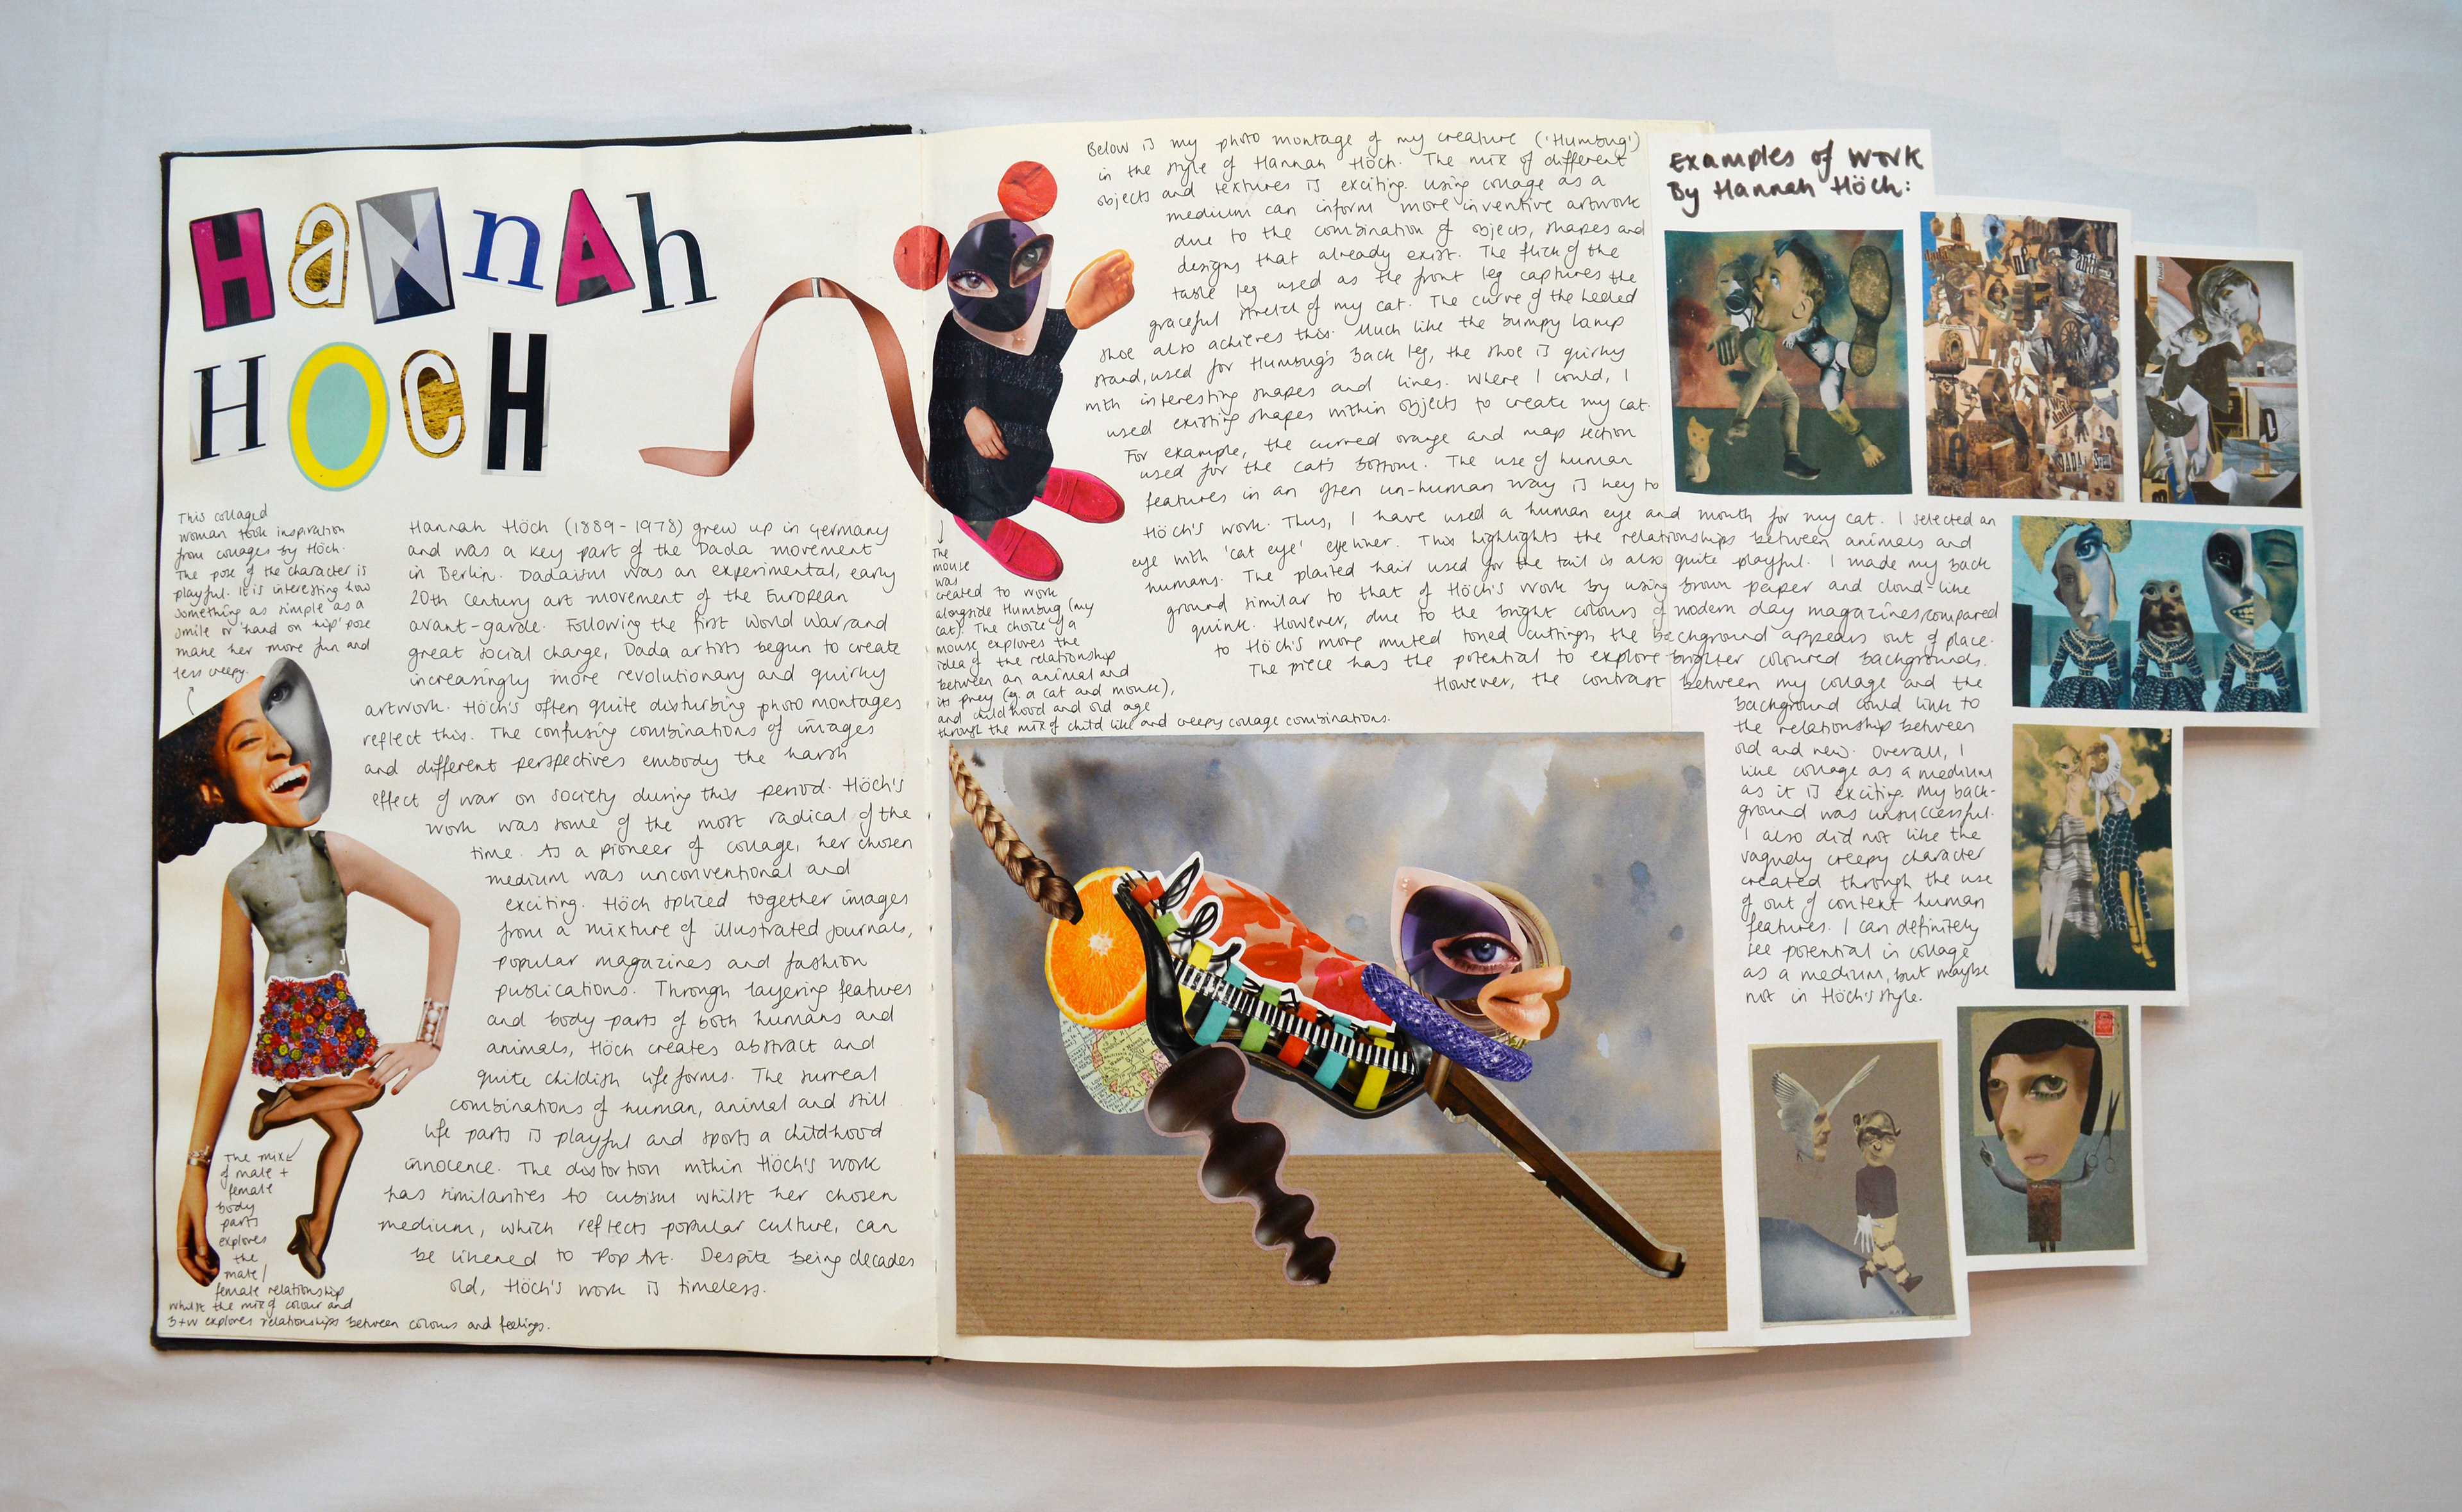 HaNnAh
HOCH
This collaged
woman took inspiration
from collages by Höch.
The pose of the character is
playful. It is interesting how
something as simple as a
smile or 'hand on hip' pose
make her more fun and
less creepy.
Hannah Höch (1889-1978) grew up in Germany
and was a key part of the Dada movement
in Berlin. Dadaism was an experimental, early
20th Century art movement of the European
avant-garde. Following the first World War, and
great social change, Dada artists begun to create
increasingly more revolutionary and quirky
artwork. Höch's often quite disturbing photo montages
reflect this. The confusing combinations of images
and different perspectives embody the harsh
effect of war on society during this period. Höch's
work was some of the most radical of the
time. As a pioneer of collage, her chosen
medium was unconventional and
exciting. Höch spliced together images
from a mixture of illustrated journals,
popular magazines and fashion
publications. Through layering features
and body parts of both humans and
animals, Höch creates abstract and
quite childish life forms. The surreal
combinations of human, animal and still
life parts is playful and sports a childhood
innocence. The distortion within Höch's work
has similarities to cubism whilst her chosen
medium, which reflects popular culture, can
be likened to Pop Art. Despite being decades
old, Höch's work is timeless.
The mix
of male +
female
body
parts
explores
the
male/
female relationship
whilst the mix of colour and
B+W explores relationships between colours and feelings.
Below is my photo montage of my creature ('Humbug')
in the style of Hannah Höch. The mix of different
objects and textures is exciting. Using collage as a
medium can inform more inventive artwork
due to the combination of objects, shapes and
designs that already exist. The flick of the
table leg used as the front leg captures the
graceful stretch of my cat. The curve of the heeled
shoe also achieves this. Much like the bumpy lamp
stand, used for Humbug's back leg, the shoe is quirky
with interesting shapes and lines. Where I could, I
used existing shapes within objects to create my cat.
For example, the curved orange and map section
used for the cats bottom. The use of human
features in an often un-human way is key to
Höch's work. Thus, I have used a human eye and mouth for my cat. I selected an
eye with 'cat eye' eyeliner. This highlights the relationships between animals and
humans. The plaited hair used for the tail is also quite playful. I made my back
ground similar to that of Höch's work by using brown paper and cloud-like
quink. However, due to the bright colours of modern day magazines, compared
to Höch's more muted toned cuttings, the background appears out of place.
The piece has the potential to explore brighter coloured backgrounds.
However, the contrast between my collage and the
background could link to
the relationship between
old and new. Overall, I
like collage as a medium
as it is exciting. My back-
ground was unsuccessful.
I also did not like the
vaguely creepy character
created through the use
of out of context human
features. I can definitely
see potential in collage
as a medium, but maybe
not in Höch's style.
The
mouse
was
created to work
alongside Humbug (my
cat). The choice of a
mouse explores the
idea of the relationship
between an animal and
its prey (eg. a cat and mouse),
and childhood and old age
through the mix of child like and creepy collage combinations.
Examples of Work
By Hannah Höch: